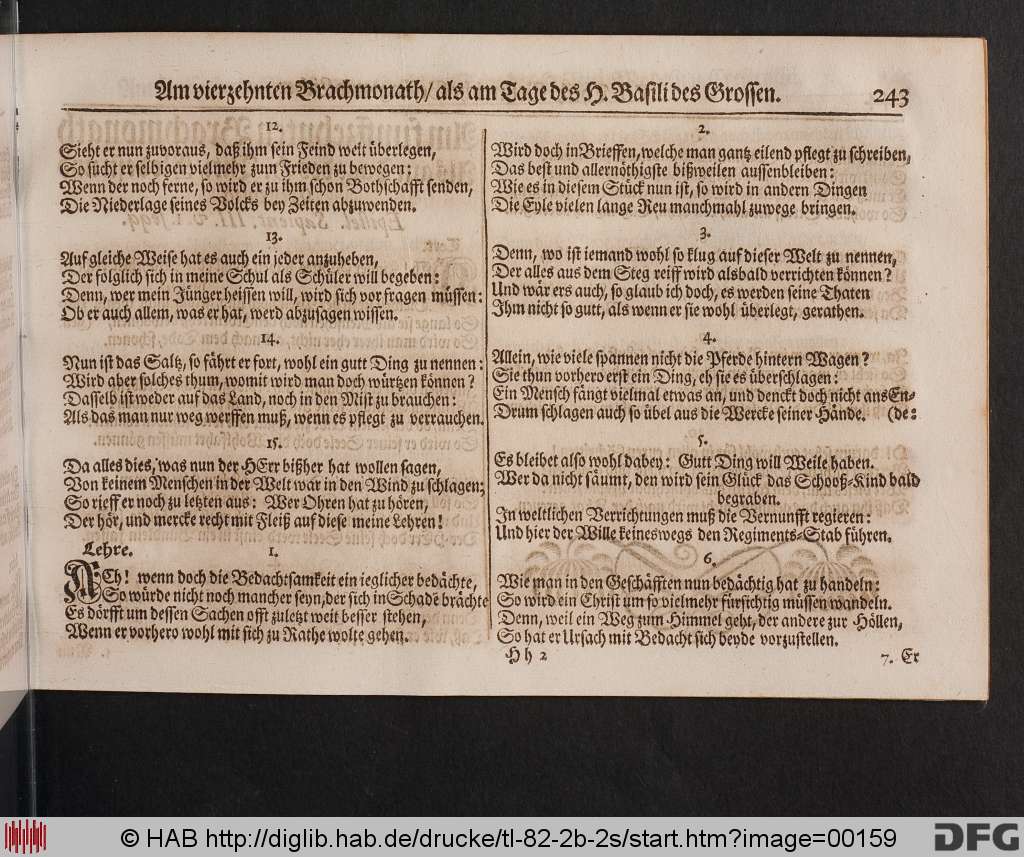 Am vierzehnten Brachmonath/ als am Tage des H. Basili des Grossen. 243
12.
Sieht er nun zuvoraus, daß ihm sein Feind weit überlegen,
So sucht er selbigen vielmehr zum Frieden zu bewegen:
Wenn der noch ferne, so wird er zu ihm schon Bothschafft senden,
Die Niederlage seines Volcks bey Zeiten abzuwenden.
13.
Auf gleiche Weise hat es auch ein jeder anzuheben,
Der folglich sich in meine Schul als Schüler will begeben:
Denn, wer mein Jünger heissen will, wird sich vor fragen müssen:
Ob er auch allem, was er hat, werd abzusagen wissen.
14.
Nun ist das Saltz, so fährt er fort, wohl ein gutt Ding zu nennen:
Wird aber solches thum, womit wird man doch würtzen können?
Dasselb ist weder auf das Land, noch in den Mist zu brauchen:
Als das man nur weg werffen muß, wenn es pflegt zu verrauchen.
15.
Da alles dies, was nun der HErr bißher hat wollen sagen,
Von keinem Menschen in der Welt war in den Wind zu schlagen;
So rieff er noch zu letzten aus: Wer Ohren hat zu hören,
Der hör, und mercke recht mit Fleiß auf diese meine Lehren!
Lehre. 1.
ACh! wenn doch die Bedachtsamkeit ein ieglicher bedächte,
So würde nicht noch mancher seyn, der sich in Schadē brächte
Es dörfft um dessen Sachen offt zuletzt weit besser stehen,
Wenn er vorhero wohl mit sich zu Rathe wolte gehen.
2.
Wird doch in Brieffen, welche man gantz eilend pflegt zu schreiben,
Das best und allernöthigste bißweilen aussenbleiben:
Wie es in diesem Stück nun ist, so wird in andern Dingen
Die Eyle vielen lange Reu manchmahl zuwege bringen.
3.
Denn, wo ist iemand wohl so klug auf dieser Welt zu nennen,
Der alles aus dem Steg reiff wird alsbald verrichten können?
Und wär ers auch, so glaub ich doch, es werden seine Thaten
Ihm nicht so gutt, als wenn er sie wohl überlegt, gerathen.
4.
Allein, wie viele spannen nicht die Pferde hintern Wagen?
Sie thun vorhero erst ein Ding, eh sie es überschlagen:
Ein Mensch fängt vielmal etwas an, und denckt doch nicht ans En-
Drum schlagen auch so übel aus die Wercke seiner Hände. (de:
5.
Es bleibet also wohl dabey: Gutt Ding will Weile haben.
Wer da nicht säumt, den wird sein Glück das Schooß-Kind bald
begraben.
In weltlichen Verrichtungen muß die Vernunfft regieren:
Und hier der Wille keineswegs den Regiments-Stab führen.
6.
Wie man in den Geschäfften nun bedächtig hat zu handeln:
So wird ein Christ um so vielmehr fürsichtig müssen wandeln.
Denn, weil ein Weg zum Himmel geht, der andere zur Höllen,
So hat er Ursach mit Bedacht sich beyde vorzustellen.
Hh 2 7. Er
© HAB http://diglib.hab.de/drucke/tl-82-2b-2s/start.htm?image=00159
DFG